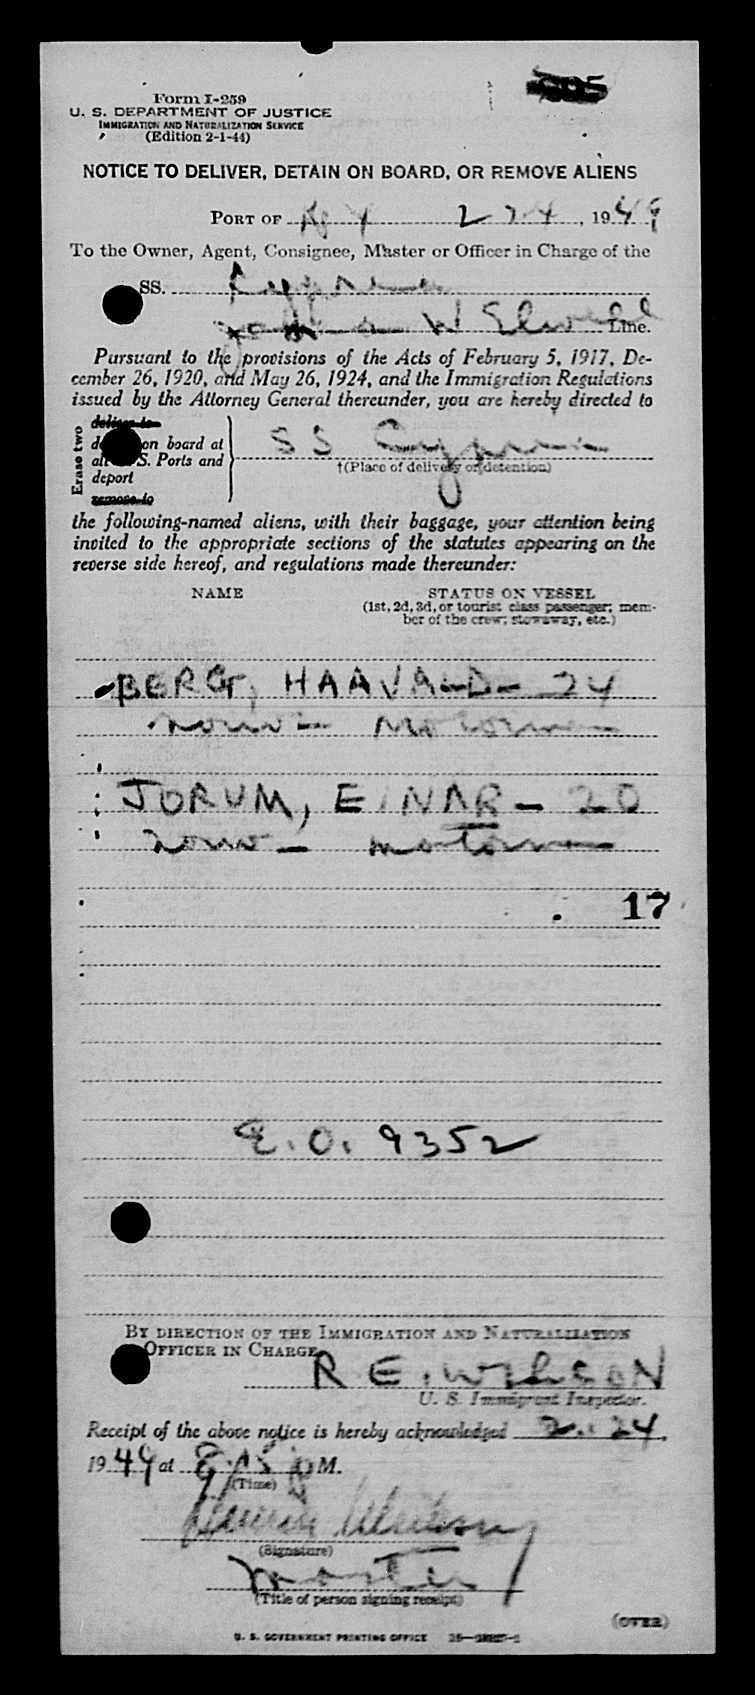 Form I-259
U. S. DEPARTMENT OF JUSTICE
IMMIGRATION AND NATURALIZATION SERVICE
(Edition 2-1-44)
NOTICE TO DELIVER, DETAIN ON BOARD, OR REMOVE ALIENS
PORT OF N Y 2 24, 1949
To the Owner, Agent, Consignee, Master or Officer in Charge of the
SS.
W Elwell Line.
Pursuant to the provisions of the Acts of February 5, 1917, De-
cember 26, 1920, and May 26, 1924, and the Immigration Regulations
issued by the Attorney General thereunder, you are hereby directed to
Erase two
deliver to
on board at
all U.S. Ports and
deport
remove to
SS
†(Place of delivery or detention)
the following-named aliens, with their baggage, your attention being
invited to the appropriate sections of the statutes appearing on the
reverse side hereof, and regulations made thereunder:
NAME STATUS ON VESSEL
(1st, 2d, 3d, or tourist class passenger; mem-
ber of the crew; stowaway, etc.)
BERG, HAAVALD - 24
Norw - Motorman
JORUM, EINAR - 20
Norw - Motorman
17
E.O. 9352
BY DIRECTION OF THE IMMIGRATION AND NATURALIZATION
OFFICER IN CHARGE
R E. WILSON
U. S. Immigrant Inspector.
Receipt of the above notice is hereby acknowledged 2. 24,
1949 at 9:15 P M.
(Time)
(Signature)
Master
(Title of person signing receipt)
(OVER)
U. S. GOVERNMENT PRINTING OFFICE